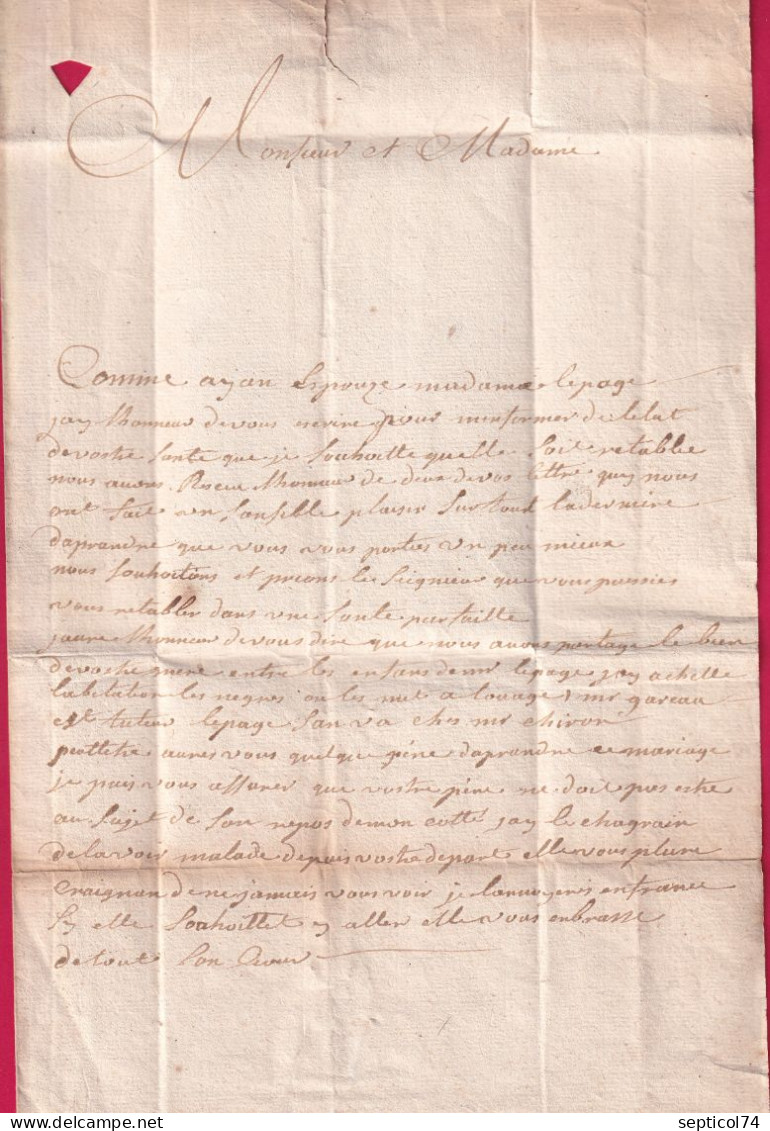 Monsieur et Madame
Comme ayan Espouze madame lepage
jay lhonneur de vous ecrire pour minformer de letat
de vostre sante que je souhaitte quelle soit retablie
nous avons Receu lhonneur de deux de vos lettre quy nous
ont fait un sansible plaisir surtout la dernire
daprandre que vous vous porties un peu mieux
nous souhaitons et prions le Seignieur que vous puissies
vous retablir dans une sante parfaitte
jaure lhonneur de vous dire que nous avons partage le bien
de vostre mere entre les enfans de mr lepage jay achette
labitation les negres on les met a louage mr gareau
est tuteur lepage san va ches mr chiron
peuttetre aures vous quelque pene daprandre ce mariage
je puis vous assurer que vostre pene ne doit pas estre
au sujet de son repos demon cotté jay le chagrain
de la voir malade depuis vostre depart elle vous plure
craignan de ne jamais vous voir je lanvoyeres en france
sy elle souhaittet y aller elle vous enbrasse
de tout son Cœur
septicol74